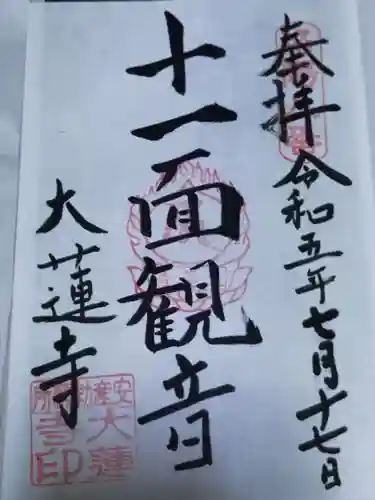 奉拝
令和五年七月十七日
十一面観音
大蓮寺
大蓮
寺印